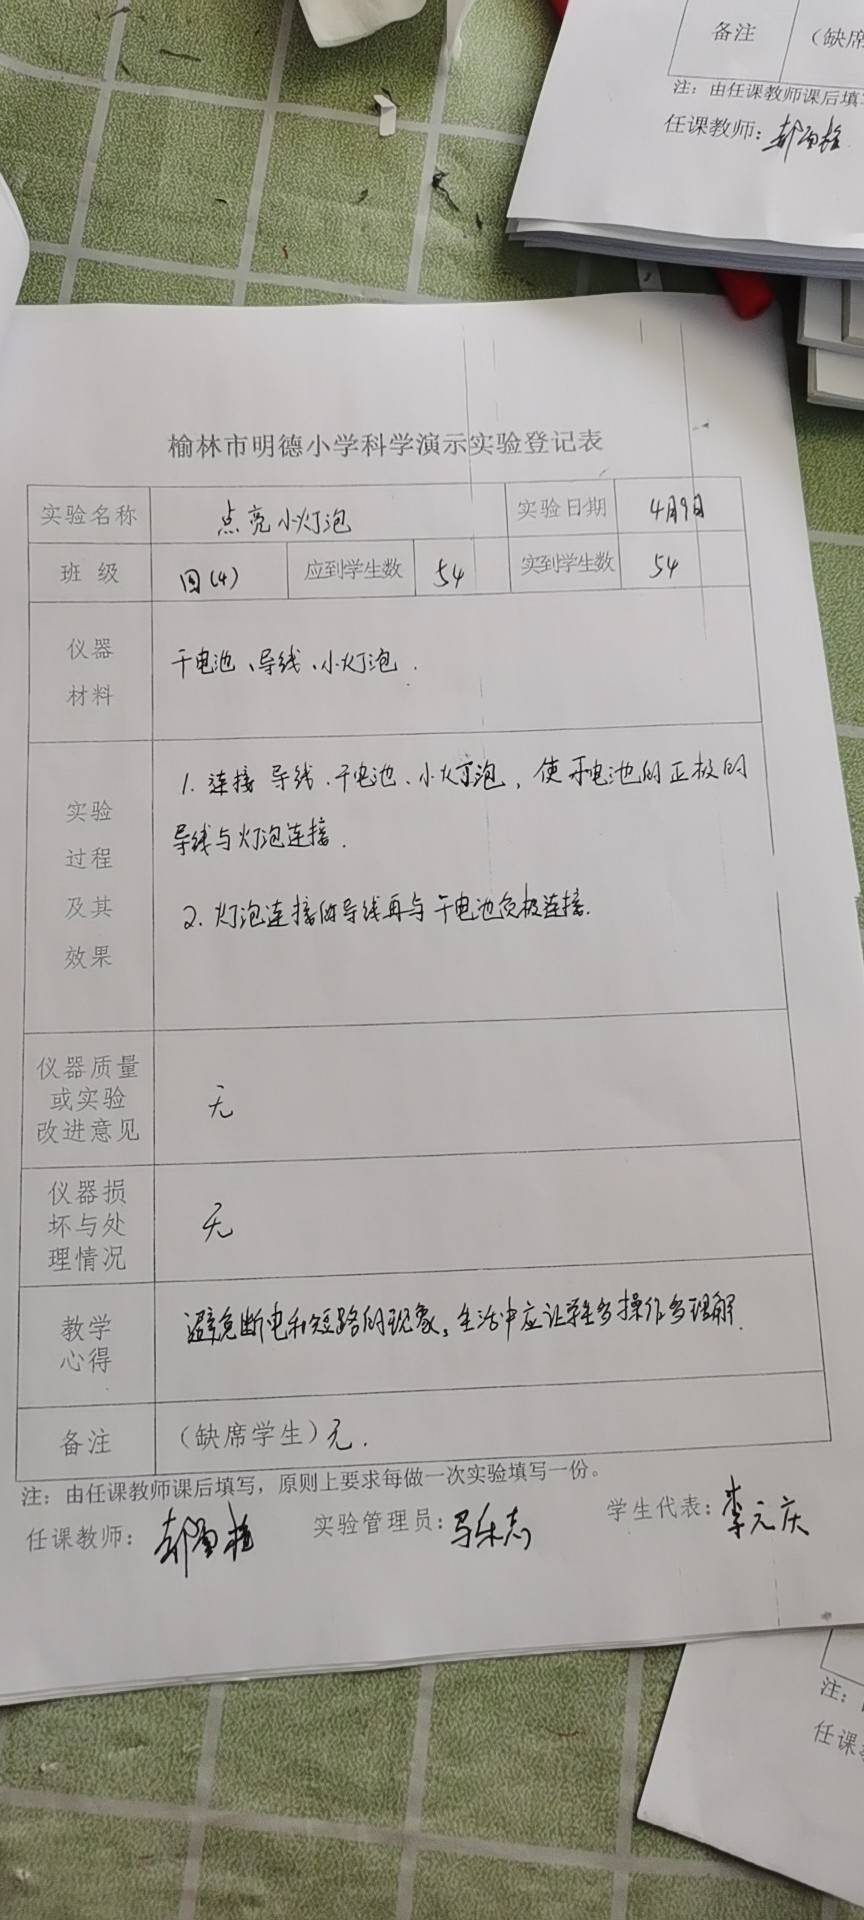 备注 （缺席
注：由任课教师课后填写
任课教师：
榆林市明德小学科学演示实验登记表
实验名称 点亮小灯泡 实验日期 4月9日
班 级 四(4) 应到学生数 54 实到学生数 54
仪器
材料
干电池、导线、小灯泡.
实验
过程
及其
效果
1. 连接导线、干电池、小灯泡，使干电池的正极的
导线与灯泡连接.
2. 灯泡连接的导线再与干电池负极连接.
仪器质量
或实验
改进意见
无
仪器损
坏与处
理情况
无
教学
心得
避免断电和短路的现象。生活中应让学生多操作多理解.
备注 （缺席学生）无.
注：由任课教师课后填写，原则上要求每做一次实验填写一份。
任课教师： 实验管理员：马乐志 学生代表：李元庆
注：
任课